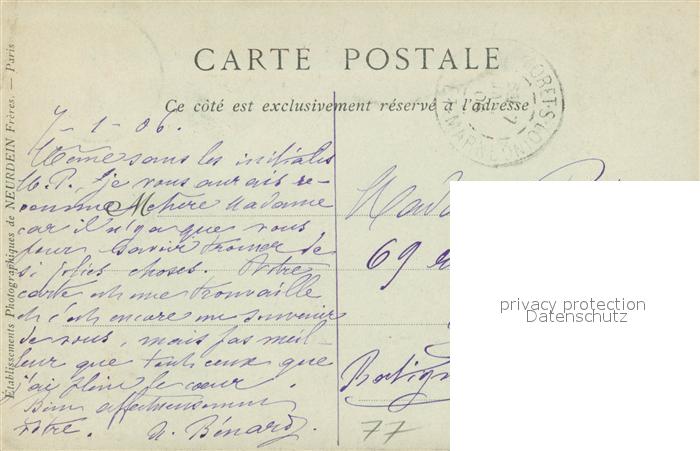 CARTE POSTALE
Ce côté est exclusivement réservé à l'adresse
Etablissements Photographiques de NEURDEIN Frères. — Paris
7-1-06.
Même sans les initiales
M. P., je vous aurais re-
connue Chère Madame
car il n'y a que vous
pour savoir trouver de
si jolies choses. Votre
carte est une trouvaille
et c'est encore un souvenir
de vous, mais pas meil-
leur que tous ceux que
j'ai plein le cœur.
Bien affectueusement
vôtre. Bénard.
69
77
privacy protection
Datenschutz